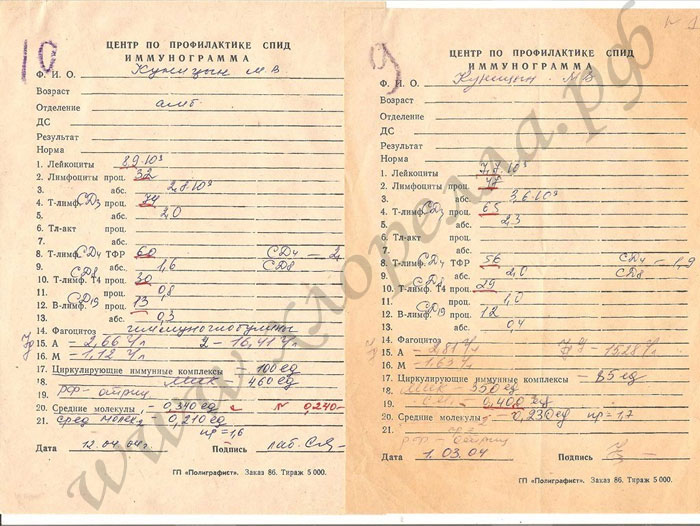 10
ЦЕНТР ПО ПРОФИЛАКТИКЕ СПИД
ИММУНОГРАММА
Ф. И. О. Куницын М В
Возраст
Отделение амб
ДС
Результат
Норма
1. Лейкоциты 8,9·10³
2. Лимфоциты проц. 32
3. абс. 2,8·10³
4. Т-лимф. CD3 проц. 74
5. абс. 2,0
6. Тл-акт проц.
7. абс.
8. Т-лимф. CD4 ТФР 60 CD4 – 2
9. абс. 1,6 CD8
10. Т-лимф. CD8 Т4 проц. 30
11. проц. 0,8
12. В-лимф. CD19 проц. 13
13. абс. 0,3
14. Фагоцитоз иммуноглобулины
15. А = 2,66 г/л – 16,41 г/л
16. М – 1,12 г/л
17. Циркулирующие иммунные комплексы – 100 ед
18. 460 ед
19. рф – отриц
20. Средние молекулы – 0,340 ед N 0,240
21. сред молек 0,210 ед
ир = 1,6
Дата 12.04.04г Подпись лаб.
ГП «Полиграфист». Заказ 86. Тираж 5 000.
9
N 1
ЦЕНТР ПО ПРОФИЛАКТИКЕ СПИД
ИММУНОГРАММА
Ф. И. О. Куницын М В
Возраст
Отделение
ДС
Результат
Норма
1. Лейкоциты 7,7·10³
2. Лимфоциты проц. 47
3. абс. 3,6·10³
4. Т-лимф. CD3 проц. 65
5. абс. 2,3
6. Тл-акт проц.
7. абс.
8. Т-лимф. CD4 ТФР 56 CD4 – 1,9
9. абс. 2,0 CD8
10. Т-лимф. CD8 Т4 проц. 29
11. проц. 1,0
12. В-лимф. CD19 проц. 12
13. абс. 0,4
14. Фагоцитоз
15. А = 2,81 г/л – 15,28 г/л
16. М – 1,63 г/л
17. Циркулирующие иммунные комплексы – 85 ед
18. 350 ед
19. 0,400 ед
20. Средние молекулы – 0,230 ед ир = 1,7
21.
рф – отриц
Дата 1.03.04 Подпись
ГП «Полиграфист». Заказ 86. Тираж 5 000.
www.хлорелла.рф